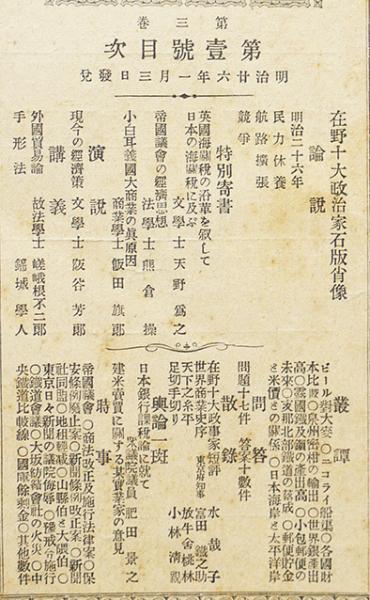 第三卷
第壹號目次
明治廿六年一月三日發兌
在野十大政治家石版肖像
論說
明治二十六年
民力休養
航路擴張
競爭
特別寄書
英國海關稅の沿革を叙して
日本の海關稅に及ぶ
文學士 天野爲之
帝國議會の經濟思想
法學士 熊倉操
小白耳義國大商業の眞原因
商業學士 飯田旗郎
演說
現今の經濟策 文學士 阪谷芳郎
講義
外國貿易論 故法學士 嵯峨根不二郎
手形法 錦城學人
叢譚
ビール
大坂
○ニコライ船渠○各國財
本比較○泉州密柑の輸出○世界銀產出
高○雲國鐵及鋼の產出高○小包郵便の
未來○亥那北部鐵道の落成○郵便貯金
と米價との關係○日本海岸と太平洋岸
問答
問題十七件 答案十數件
散錄
在野十大政事家短評 水哉子
世界商業史序 東京府知事 富田鐵之助
天下之糸平 放牛舍桃林
足切手切り 小林淸親
輿論一班
日本銀行課稅論に就て
衆議院議員 肥田景之
建米賣買に關する某實業家の意見
時事
帝國議會○商法改正及施行法律案○保
安條例廢止案○新聞條例改正案○新聞
社同盟○地租輕減○山縣伯と大隈伯○
東京日々新聞の議院侮辱○豫戒令施行
○鐵道會議○大坂紡績會社の火災○中
央鐵道比較線○國庫餘剩金○其他數件